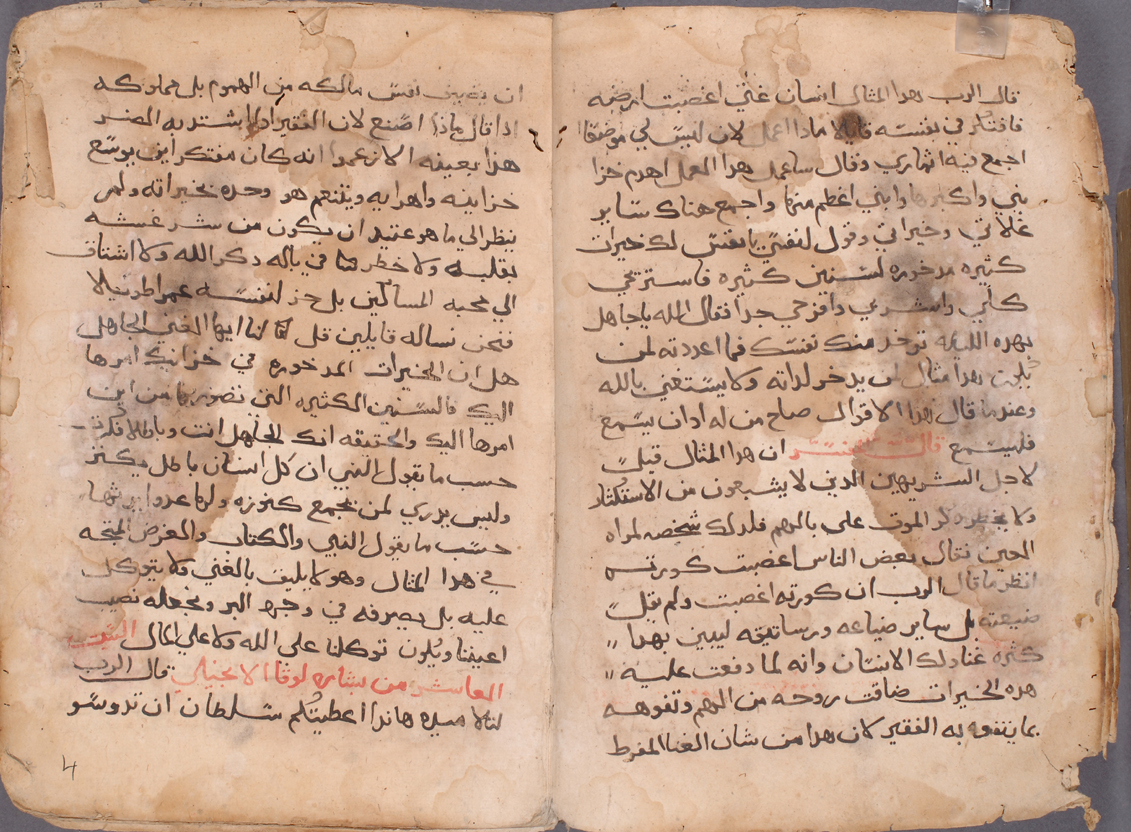 قال الرب هدا المثال انسان غني اعصبت ارضه
فافتكر في نفسه قايلا مادا اعمل لان ليس لي موضعا
اجمع فيه اثماري وقال ساعمل هدا العمل اهدم خزا
يني واكبرها وابني اعظم منها واجمع هناك ساير
غلاتي وخيراتي وقول لنفسي يا نفس لك خيرات
كثيره مدخوره لسنين كثيره فاسترىحي
كلي واشربي وافرحي جدا فقال الله ياجاهل
بهده الليله توخد منك نفسك فما اعددته لمن
يكون هدا مثال من يدخر لداته ولا يستغني بالله
وعندما قال هدا الاقوال صاح من له ادان يسمع
فليسمع قال ان هدا المثال قيل
لاجل الشرهين الدين لا يشبعون من الاستكثار
ولا يخطر دكر الموت على بالهم فلدلك شخصه لمراه
الحين فقال بعض الناس اعصبت كورتهم
انظر ما قال الرب ان كورته اعصبت ولم يقل
ضيعته بل ساير ضياعه ورساتيقه ليبين بهدا
كثرة غنا دلك الانسان وانه لما دفعت عليه
هده الخيرات ضاقت روحه من الهم وتفوهه
بما يتفوه به الفقير لان هدا من شان الغنا المفرط
ان يضيق نفس مالكه من الهموم بل مملوكه
ادا قال مادا اصنع لان الفقير ادا اشتد به الضر
هدا بعينه الان عمدا انه كان مفتكر اين يوسع
خزاينه واهرايه ويتنعم هو وحده بخيراته ولم
ينظر الى ما هو عتيد ان يكون من شر غشه
بقلبه ولا خطر في باله دكر الله ولا اشتاق
الي محبه المساكين بل حز لنفسه عمرا طويلا
فنحن نساله قايلين قل لنا ايها الغني الجاهل
هل ان الخيرات المدخوره في خزانيك امرها
اليك فالسنين الكثيره التي تصورتها من اين
امرها اليك والحقيقه انك لجاهل انت وباطلا فكرت
حسب ما يقول النبي ان كل انسان باطل يكنز
وليس يدري لمن يجمع كنوزه ولها عدوا يرثها
حسب ما يقول النبي والكتاب والغرض المتجه
في هدا المثال وهو لا يليق بالغني ولا يتوكل
عليه بل يصرفه في وجوه البر ويجعله نصب
اعيننا ويكون توكلنا علي الله ولا علي المال
العاشر من بشاره لوقا الانجيلي قال الرب
لتلاميده هاندا اعطيتكم سلطان ان تدوسو
4